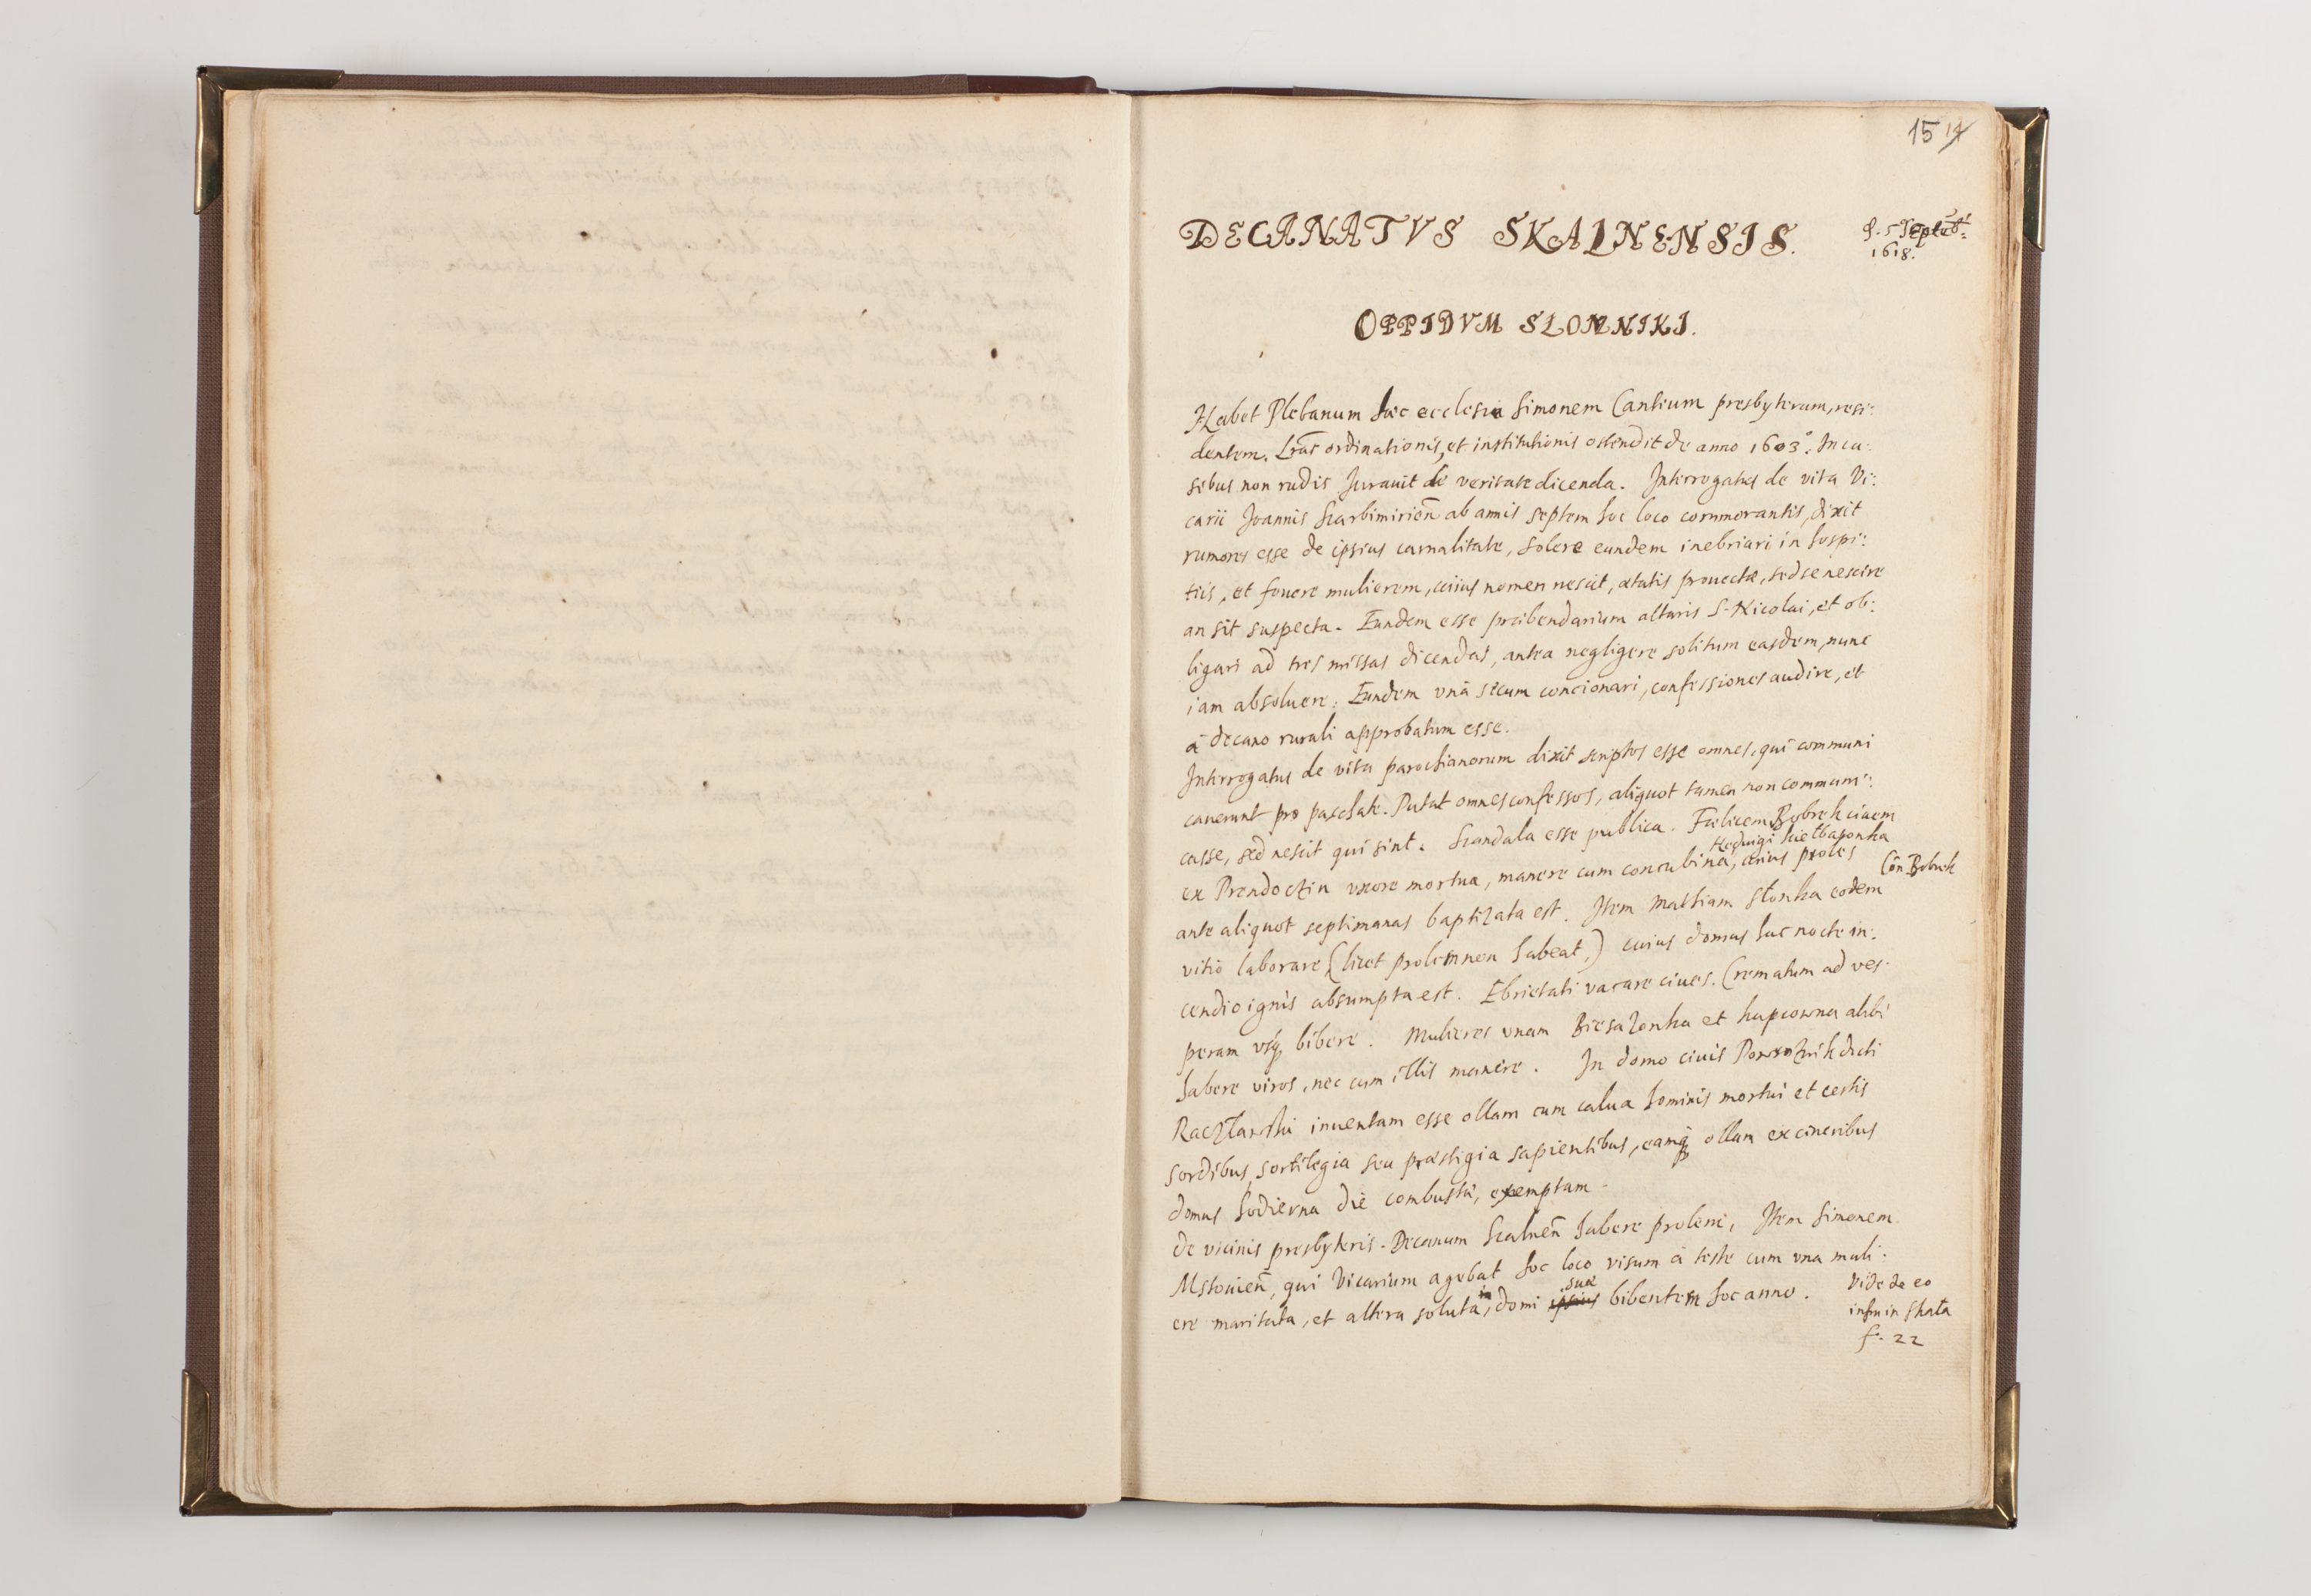 15 14
DECANATVS SKALNENSIS.
5 Septēb:
1618.
OPPIDVM SLOMNIKI.
Habet Plebanum hæc ecclesia Simonem Cantium presbyterum, resi:
dentem. Lrās ordinationis, et institutionis ostendit de anno 1603°. In ca:
sibus non rudis Jurauit de veritate dicenda. Interrogatus de vita Vi:
carii Joannis Scarbimirien̄ ab annis septem hoc loco commorantis, dixit
rumores esse de ipsius carnalitate, solere eundem inebriari in hospi:
tiis, et fouere mulierem, cuius nomen nescit, ætatis prouectæ, sed se nescire
an sit suspecta. Eundem esse præbendarium altaris S. Nicolai, et ob:
ligari ad tres missas dicendas, antea negligere solitum easdem, nunc
iam absoluere. Eundem vnā secum concionari, confessiones audire, et
à decano rurali approbatum esse.
Interrogatus de vita parochianorum dixit scriptos esse omnes, qui communi
cauerunt pro paschate. Putat omnes confessos, aliquot tamen non communi:
casse, sed nescit qui sint. Scandala esse publica. Fœlicem Bobrek ciuem
Heduigi Kielbasonka
ex Prendoczin vxore mortua, manere cum concubina, cuius proles
Cōn Bobrek
ante aliquot septimanas baptizata est. Item Mathiam Slonka eodem
vitio laborare, (licet prolem non habeat,) cuius domus hac nocte in:
cendio ignis absumpta est. Ebrietati vacare ciues. Crematum ad ves:
peram vsq bibere. Mulieres vnam Biesazonka et Kupcowna alibi
habere viros, nec cum illis manere. In domo ciuis Powroznik dicti
Raczlawski inuentam esse ollam cum calua hominis mortui et certis
sordibus, sortilegia seu præstigia sapientibus, eamq ollam ex cineribus
domus hodierna die combustæ, exemptam.
De vicinis presbyteris. Decanum Scalnen̄ habere prolem, Item Simonem
Mstouien̄, qui Vicarium agebat hoc loco visum à teste cum vna muli:
ere maritata, et altera soluta, in domi ipsius suæ bibentem hoc anno.
Vide de eo
infra in Skała
f. 22